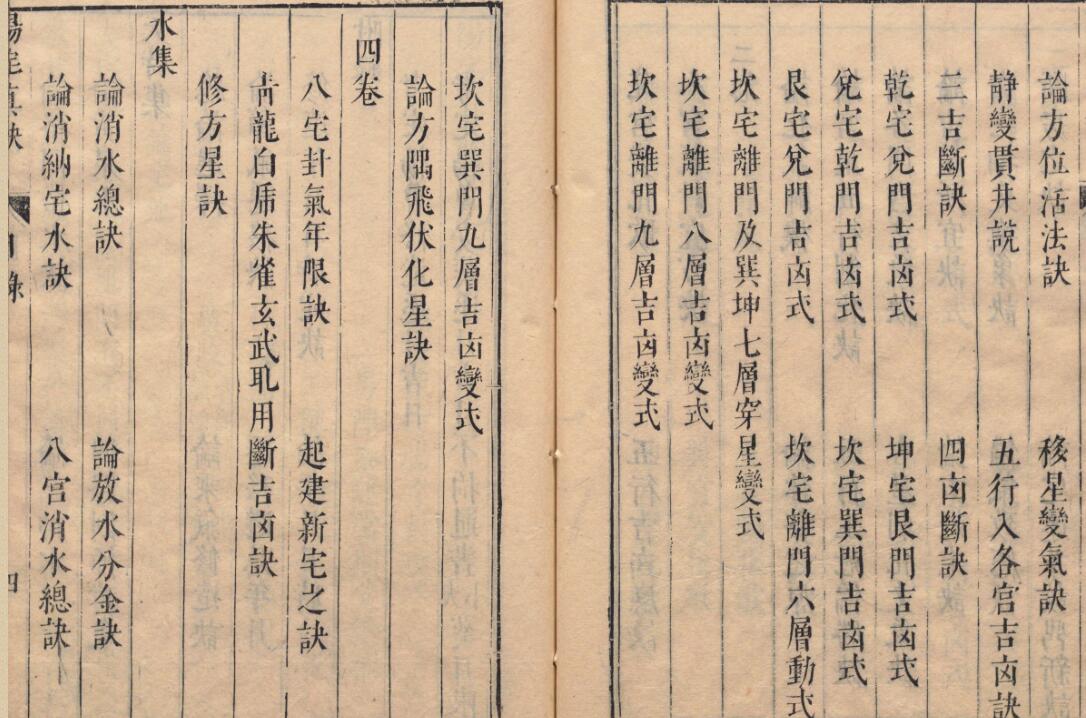 論方位活法訣　移星變氣訣
静變貫井説　五行入各宮吉凶訣
三吉斷訣　四凶斷訣
乾宅兌門吉凶式　坤宅艮門吉凶式
兌宅乾門吉凶式　坎宅巽門吉凶式
艮宅兌門吉凶式　坎宅離門六層動式
坎宅離門及巽坤七層穿星變式
坎宅離門八層吉凶變式
坎宅離門九層吉凶變式
坎宅巽門九層吉凶變式
論方隅飛伏化星訣
四卷
八宅卦氣年限訣　起建新宅之訣
靑龍白虎朱雀玄武肶用斷吉凶訣
修方星訣
水集
論消水總訣　論放水分金訣
論消納宅水訣　八宮消水總訣
陽宅真訣　目錄　四